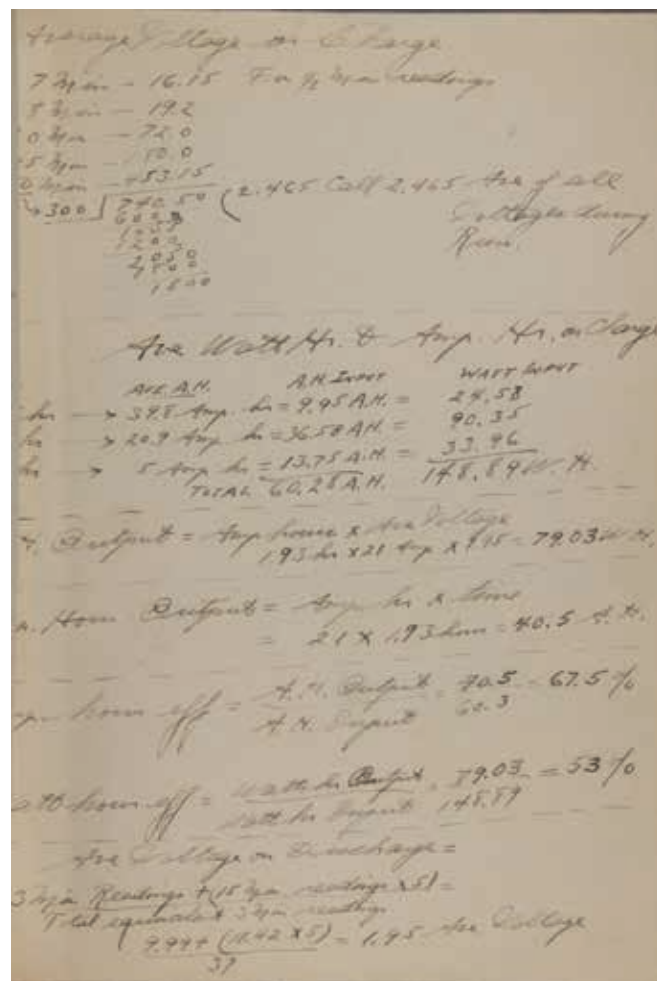 Average Voltage on Charge
7 Min - 16.15 For ½ Min readings
5 Min - 19.2
0 Min - 72.0
5 Min - 180.0
0 Min - 453.15
300 740.50 ( 2.465 Call 2.465 Ave of all
600 Voltages during
1200 Run.
2050
1800
1500
Ave Watt Hr. & Amp. Hr. on Charge
AVE. A.H. A.H. INPUT WATT INPUT
hr → 39.8 Amp. hr = 9.95 A.H. = 24.58
hr → 20.9 Amp hr = 36.58 A.H. = 90.35
hr → 5 Amp hr = 13.75 A.H. = 33.96
TOTAL 60.28 A.H. 148.89 W.H.
Output = Amp hours x Ave Voltage
1.93 hr x 21 Amp x 1.95 = 79.03 W.H.
Hour Output = Amp hr x time
= 21 x 1.93 hour = 40.5 A.H.
hour eff = A.H. Output 40.5 = 67.5 %
A.H. Input 60.3
att hour eff = Watt hr Output 79.03 = 53 %
Watt hr Input 148.89
Ave Voltage on Discharge =
3 Min Readings + (15 Min readings x 5) =
Total equivalent 3 Min readings
9.99 + (11.42 x 5) = 1.95 Ave Voltage
39